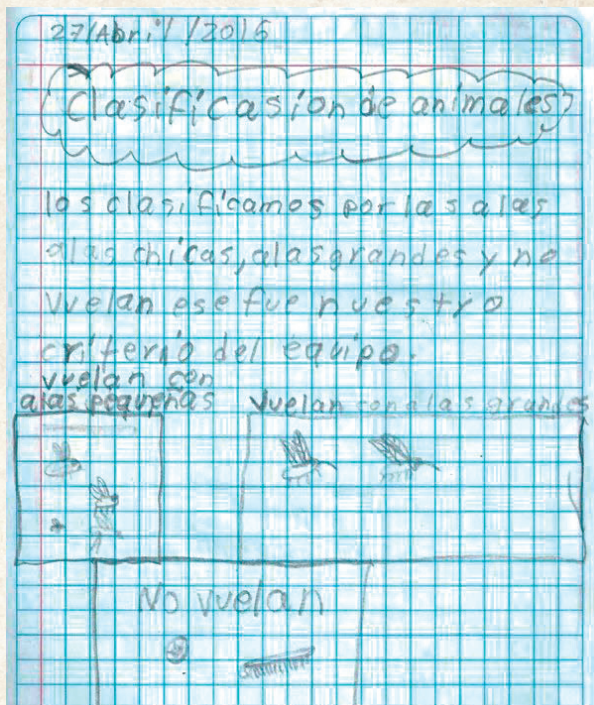 27/Abril/2016
Clasificasion de animales
los clasificamos por las alas
alas chicas, alas grandes y no
vuelan ese fue nuestro
criterio del equipo.
vuelan con
alas pequeñas
vuelan con alas grandes
No vuelan